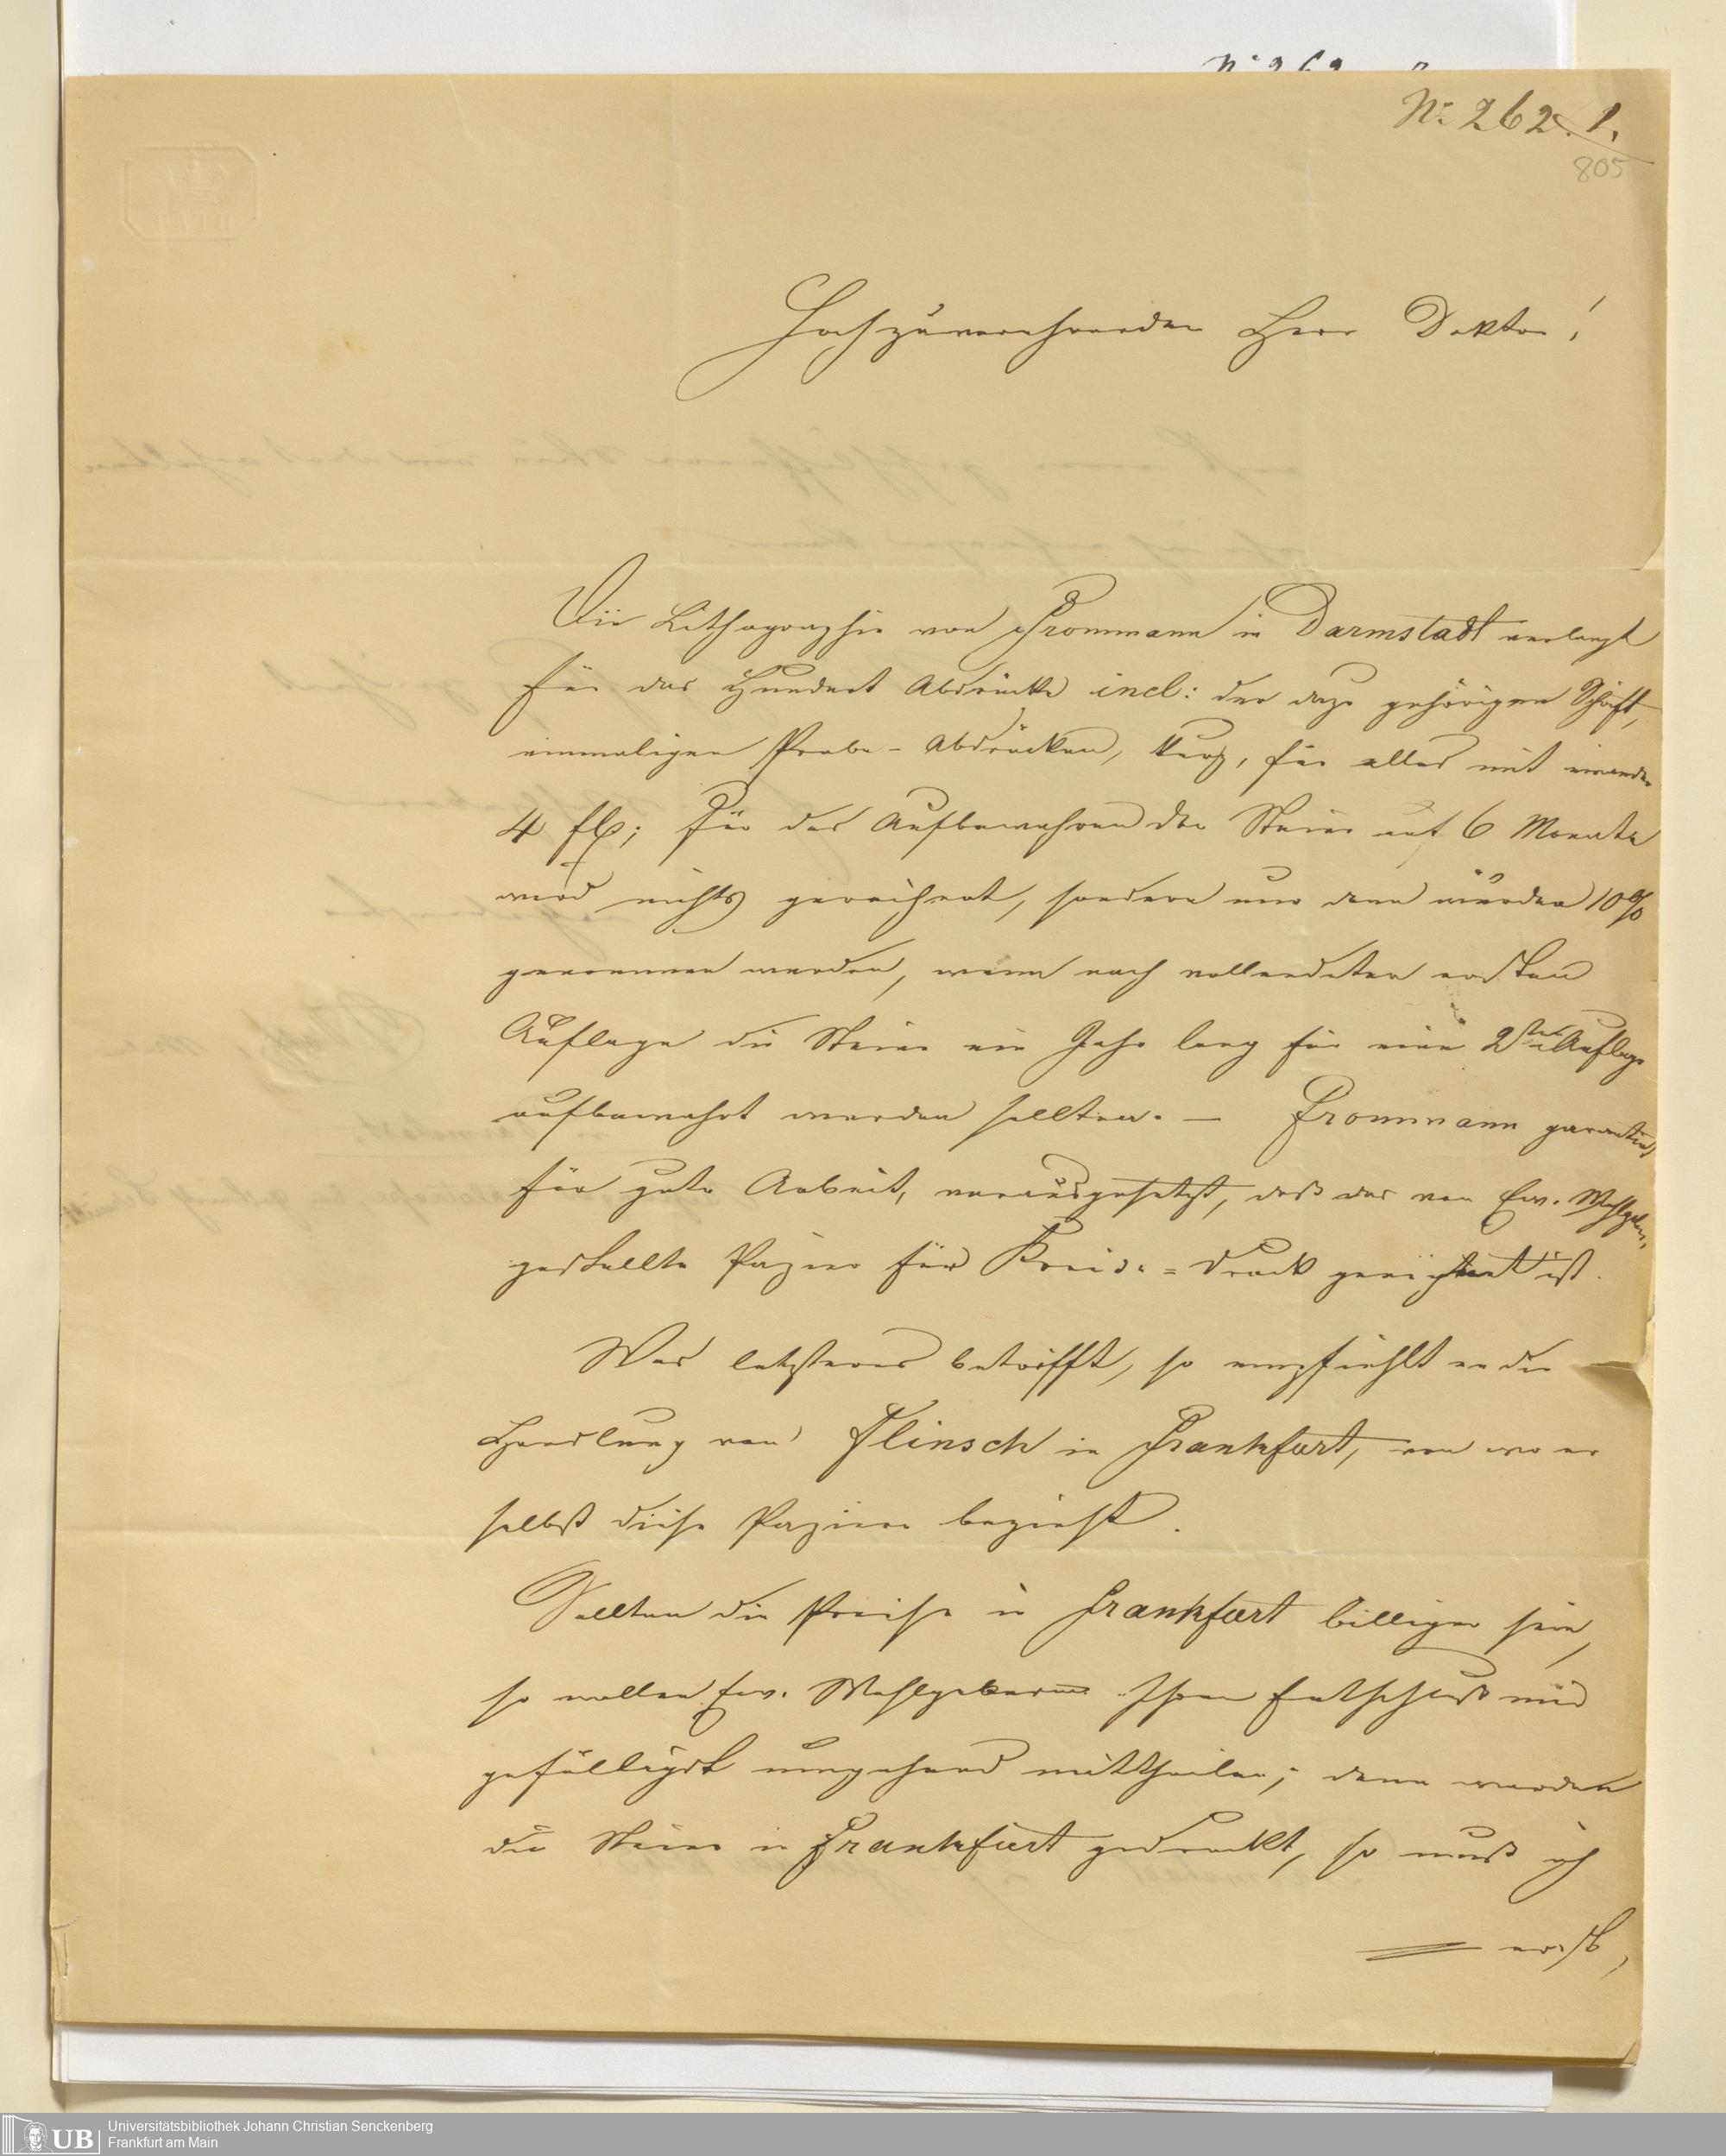 Nr. 262. 1.
805
Hochzuverehrender Herr Doktor!
Die Lithographie von Frommann in Darmstadt verlangt
für das Hundert Abdrücke incl: der dazu gehörigen Schrift,
einmaligen Probe-Abdrücken, kurz, für alles mit einander
4 fl; für das Aufbewahren der Steine auf 6 Monate
wird nichts gerechnet, sondern nur dann würden 10%
genommen werden, wenn nach vollendeter ersten
Auflage die Steine ein Jahr lang für eine 2te Auflage
aufbewahrt werden sollten. — Frommann garantirt
für gute Arbeit, vorausgesetzt, daß das von Ew. Wohlgebr.
gestellte Papier für Kreide=Druck geeignet ist.
Was letzteres betrifft, so empfiehlt er die
Handlung von Flinsch in Frankfurt, von wo er
selbst diese Papiere bezieht.
Sollten die Preise in Frankfurt billiger sein,
so wollen Ew. Wohlgeboren Ihren Entschluß mir
gefälligst umgehend mittheilen; denn werden
die Steine in Frankfurt gedruckt, so muß ich
erst,
UB
Universitätsbibliothek Johann Christian Senckenberg
Frankfurt am Main